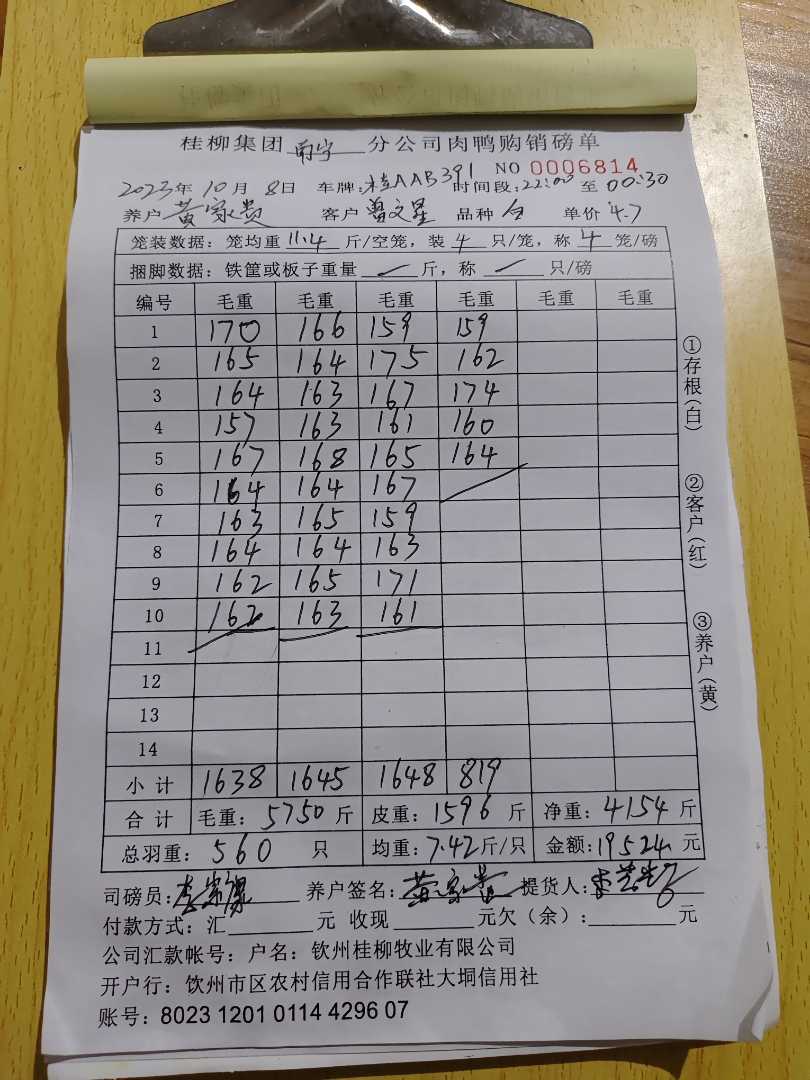 桂柳集团 南宁 分公司肉鸭购销磅单
NO 0006814
2023年 10月 8日 车牌：桂AAB391 时间段：22:00 至 00:30
养户 黄家贵 客户 曾文星 品种 白 单价 4.7
笼装数据：笼均重 11.4 斤/空笼，装 4 只/笼，称 4 笼/磅
捆脚数据：铁筐或板子重量 / 斤，称 / 只/磅
编号 毛重 毛重 毛重 毛重 毛重 毛重
1 170 166 159 159
2 165 164 175 162
3 164 163 167 174
4 157 163 161 160
5 167 168 165 164
6 164 164 167
7 163 165 159
8 164 164 163
9 162 165 171
10 162 163 161
11
12
13
14
小计 1638 1645 1648 819
合计 毛重：5750 斤 皮重：1596 斤 净重：4154 斤
总羽重：560 只 均重：7.42斤/只 金额：19524 元
司磅员： 养户签名：黄家贵 提货人：
付款方式：汇 元 收现 元欠（余）： 元
公司汇款帐号：户名：钦州桂柳牧业有限公司
开户行：钦州市区农村信用合作联社大垌信用社
账号：8023 1201 0114 4296 07
①存根（白）
②客户（红）
③养户（黄）